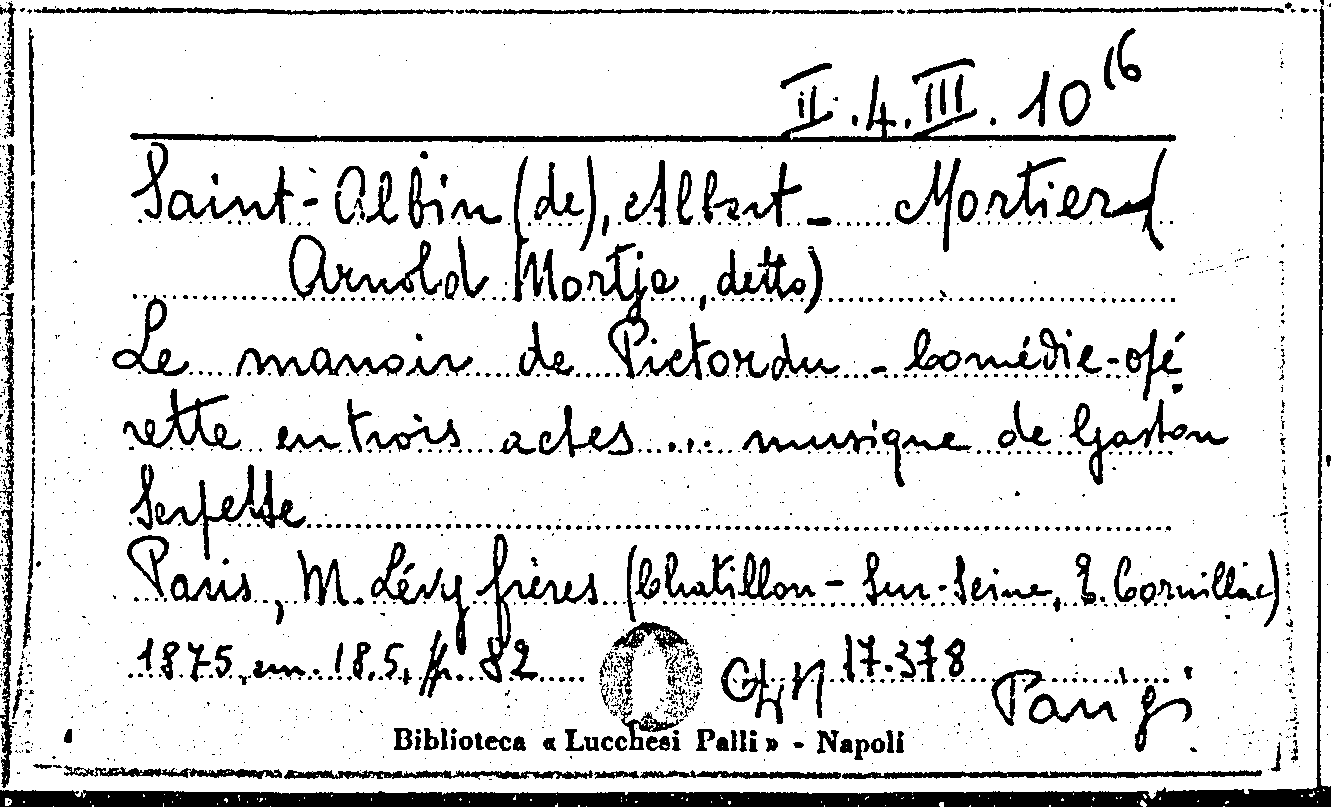 II.4.III.10 16
Saint-Albin (de), Albert - Mortier (
Arnold Mortje, detto)
Le manoir de Pictordu - Comédie-opé
rette en trois actes ... musique de Gaston
Serpette
Paris, M. Lévy frères (Chatillon-sur-Seine, E. Cornillac)
1875, cm. 18.5, pp. 82 17.378 Parigi
Biblioteca « Lucchesi Palli » - Napoli